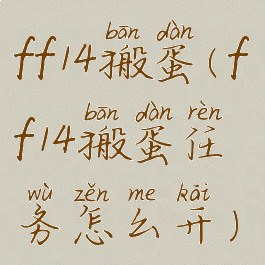 bān dàn
ff14搬蛋(f
bān dàn rèn
f14搬蛋任
wù zěn me kāi
务怎么开)